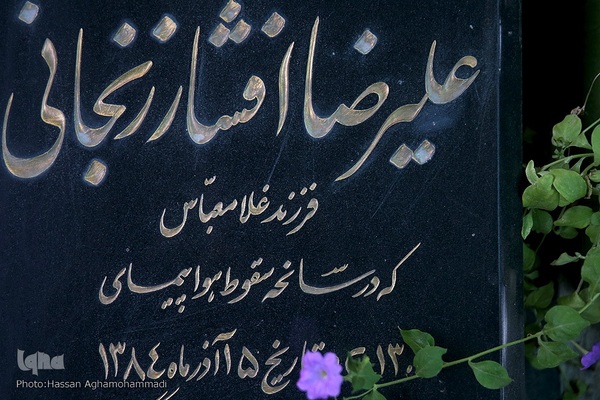 علیرضا افشار زنجانی
فرزند غلامعبّاس
که در سانحه سقوط هواپیمای
۱۳۰ تاریخ ۱۵ آذر ماه ۱۳۸۴
iqna
Photo:Hassan Aghamohammadi